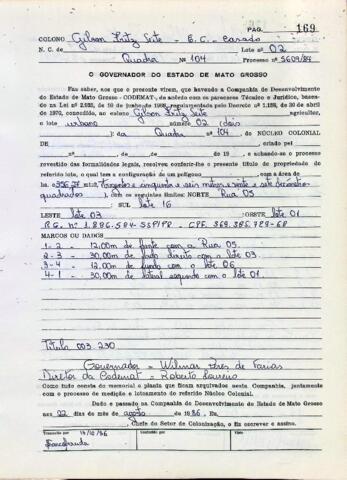 PAG. 169
COLONO Gilson Fritz Leite - E.C. Casado
N. C. de Lote nº 02
Quadra Nº 104 Processo nº 5609/84
O GOVERNADOR DO ESTADO DE MATO GROSSO
Faz saber, aos que o presente virem, que havendo a Companhia de Desenvolvimento
do Estado de Mato Grosso - CODEMAT, de acôrdo com os pareceres Técnico e Jurídico, basea-
do na Lei nº 2.933, de 10 de junho de regulamentada pelo Decreto nº 1.138, de 30 de abril
de 1970, concedido ao colono Gilson Fritz Leite agricultor,
o lote urbano número 02 (dois
) da Quadra nº 104. do NÚCLEO COLONIAL
DE criado pel
nº de de de 19 , e achando-se o processo
revestido das formalidades legais, resolveu conferir-lhe o presente título de propriedade do
referido lote, o qual tem a configuração de um polígono com a área de
ha 356,27 mts2, trezentos e cinquenta e seis metros e vinte e sete
quadrados) com os seguintes limites: NORTE Rua 05
SUL lote 16
LESTE lote 03 OESTE lote 01
R.G. nº 1.896.584-SSP/PR - CPF. 369.385.729-68
MARCOS OU DADOS
1-2 - 12,00m de frente com a Rua 05.
2-3 - 30,00m do lado direito com o lote 03.
3-4 - 12,00m de fundo com o lote 06.
4-1 - 30,00m de lateral segundo com o lote 01.
Título 003.230
Governador - Wilmar Peres de Farias
Diretor da Codemat - Roberto Loureiro
Como tudo consta do memorial e planta que ficam arquivados nesta Companhia, juntamente
com o processo de medição e loteamento do referido Núcleo Colonial.
Dado e passado na Companhia de Desenvolvimento do Estado de Mato Grosso
aos 22 dias do mês de agosto de 1986. Eu,
Chefe do Setor de Colonização, o fiz escrever e assino.
Transcrito por 14/10/86
Conferido por
Visto